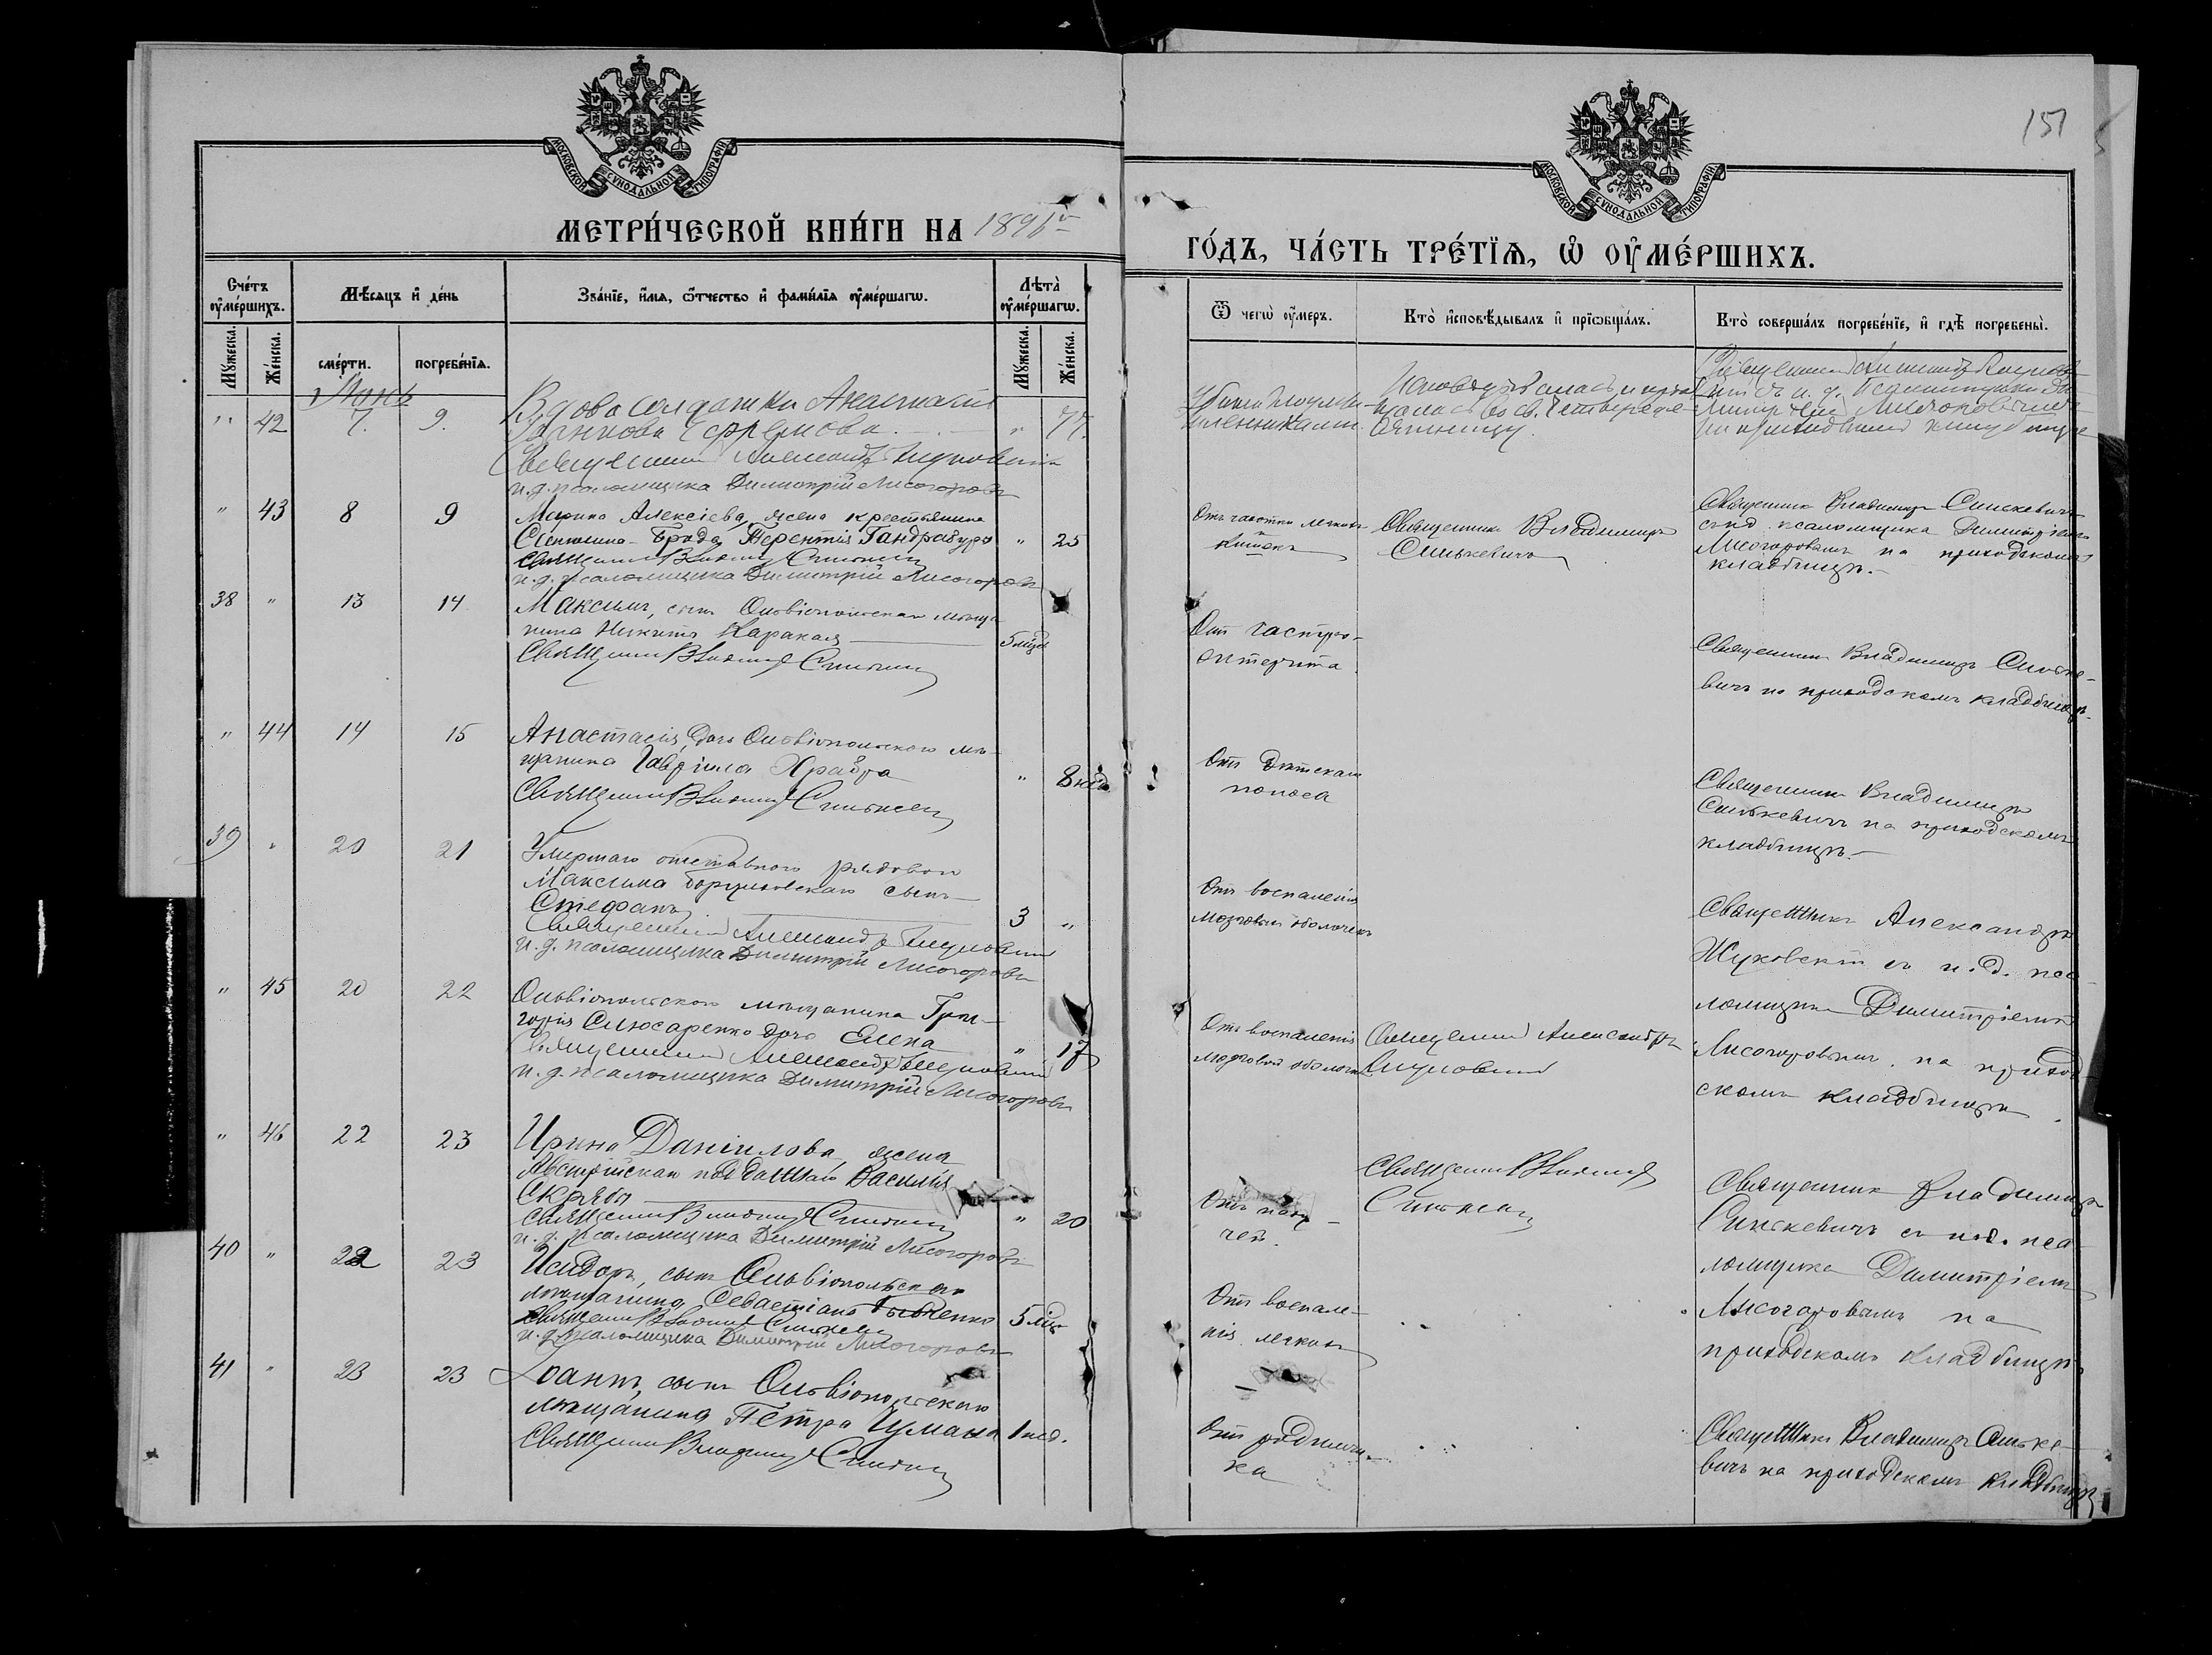 151
МОСКОВСКОЙ СѴНОДАЛЬНОЙ ТИПОГРАФІИ
МОСКОВСКОЙ СѴНОДАЛЬНОЙ ТИПОГРАФІИ
МЕТРИ́ЧЕСКОЙ КНИ́ГИ НА 1896й
ГО́ДЪ, ЧА́СТЬ ТРЕ́ТІѦ, Ѽ ОУ҆МЕ́РШИХЪ.
Сче́тъ оу҆ме́ршихъ.
Мѣ́сяцъ и҆ де́нь
Зва́нїе, и҆́мѧ, ѻ҆́тчество и҆ фами́лїѧ оу҆ме́ршагѡ.
Лѣ̀та̀ оу҆ме́ршагѡ.
Мꙋ́жеска.
Же́нска.
сме́рти.
погребе́нїѧ.
Мꙋ́жеска.
Же́нска.
Ѿ чегѡ̀ оу҆́меръ.
Кто̀ и҆сповѣ́дывалъ и҆ прїѡбща́лъ.
Кто̀ соверша́лъ погребе́нїе, и҆ гдѣ̀ погребены̀.
" 42 7. 9. Вдова солдатки Анастасія
Ефремова " 77.
Священникъ Александръ Жуковскій
и.д. псаломщика Димитрій Лисогоровъ
" 43 8 9 Марина Алексіева, жена крестьянина
Терентія Гандрабура " 25
Священникъ Владиміръ Синькевичъ
и.д. псаломщика Димитрій Лисогоровъ
Священникъ Владиміръ
Синькевичъ
Священникъ Владиміръ Синькевичъ
съ и.д. псаломщика Димитріемъ
Лисогоровымъ на приходскомъ
кладбищѣ.
38 " 13 14 Максимъ, сынъ Ольвіопольскаго мѣща-
нина Никиты Каракая 5 мѣс.
Священникъ Владиміръ Синькевичъ
Отъ гастро-
энтерита
Священникъ Владиміръ Синьке-
вичъ на приходскомъ кладбищѣ.
" 44 14 15 Анастасія, дочь Ольвіопольскаго мѣ-
щанина Гавріила Храбра " 8 нед.
Священникъ Владиміръ Синькевичъ
Отъ дѣтскаго
поноса
Священникъ Владиміръ
Синькевичъ на приходскомъ
кладбищѣ.
39 " 20 21 Умершаго отставного рядового
Максима сынъ
Стефанъ 3 "
Священникъ Александръ Жуковскій
и.д. псаломщика Димитрій Лисогоровъ
Отъ воспаленія
мозговыхъ оболочекъ
Священникъ Александръ
Жуковскій съ и.д. пса-
ломщика Димитріемъ
Лисогоровымъ на приход-
скомъ кладбищѣ.
" 45 20 22 Ольвіопольскаго мѣщанина Гри-
горія Слюсаренко дочь Елена " 17
Священникъ Александръ Жуковскій
и.д. псаломщика Димитрій Лисогоровъ
Отъ воспаленія
мозговой оболочки
Священникъ Александръ
Жуковскій
" 46 22 23 Ирина Даніилова, жена
Австрійскаго подданнаго Василія
Скрябы " 20
Священникъ Владиміръ Синькевичъ
и.д. псаломщика Димитрій Лисогоровъ
Священникъ Владиміръ
Синькевичъ
Священникъ Владиміръ
Синькевичъ съ и.д. пса-
ломщика Димитріемъ
Лисогоровымъ на
приходскомъ кладбищѣ
40 " 22 23 Исидоръ, сынъ Ольвіопольскаго
мѣщанина Севастіана 5 мѣс.
Священникъ Владиміръ Синькевичъ
и.д. псаломщика Димитрій Лисогоровъ
Отъ воспале-
нія легкихъ
41 " 23 23 Іоаннъ, сынъ Ольвіопольскаго
мѣщанина Петра Цумана 1 нед.
Священникъ Владиміръ Синькевичъ
Отъ родимчи-
ка
Священникъ Владиміръ Синьке-
вичъ на приходскомъ кладбищѣ